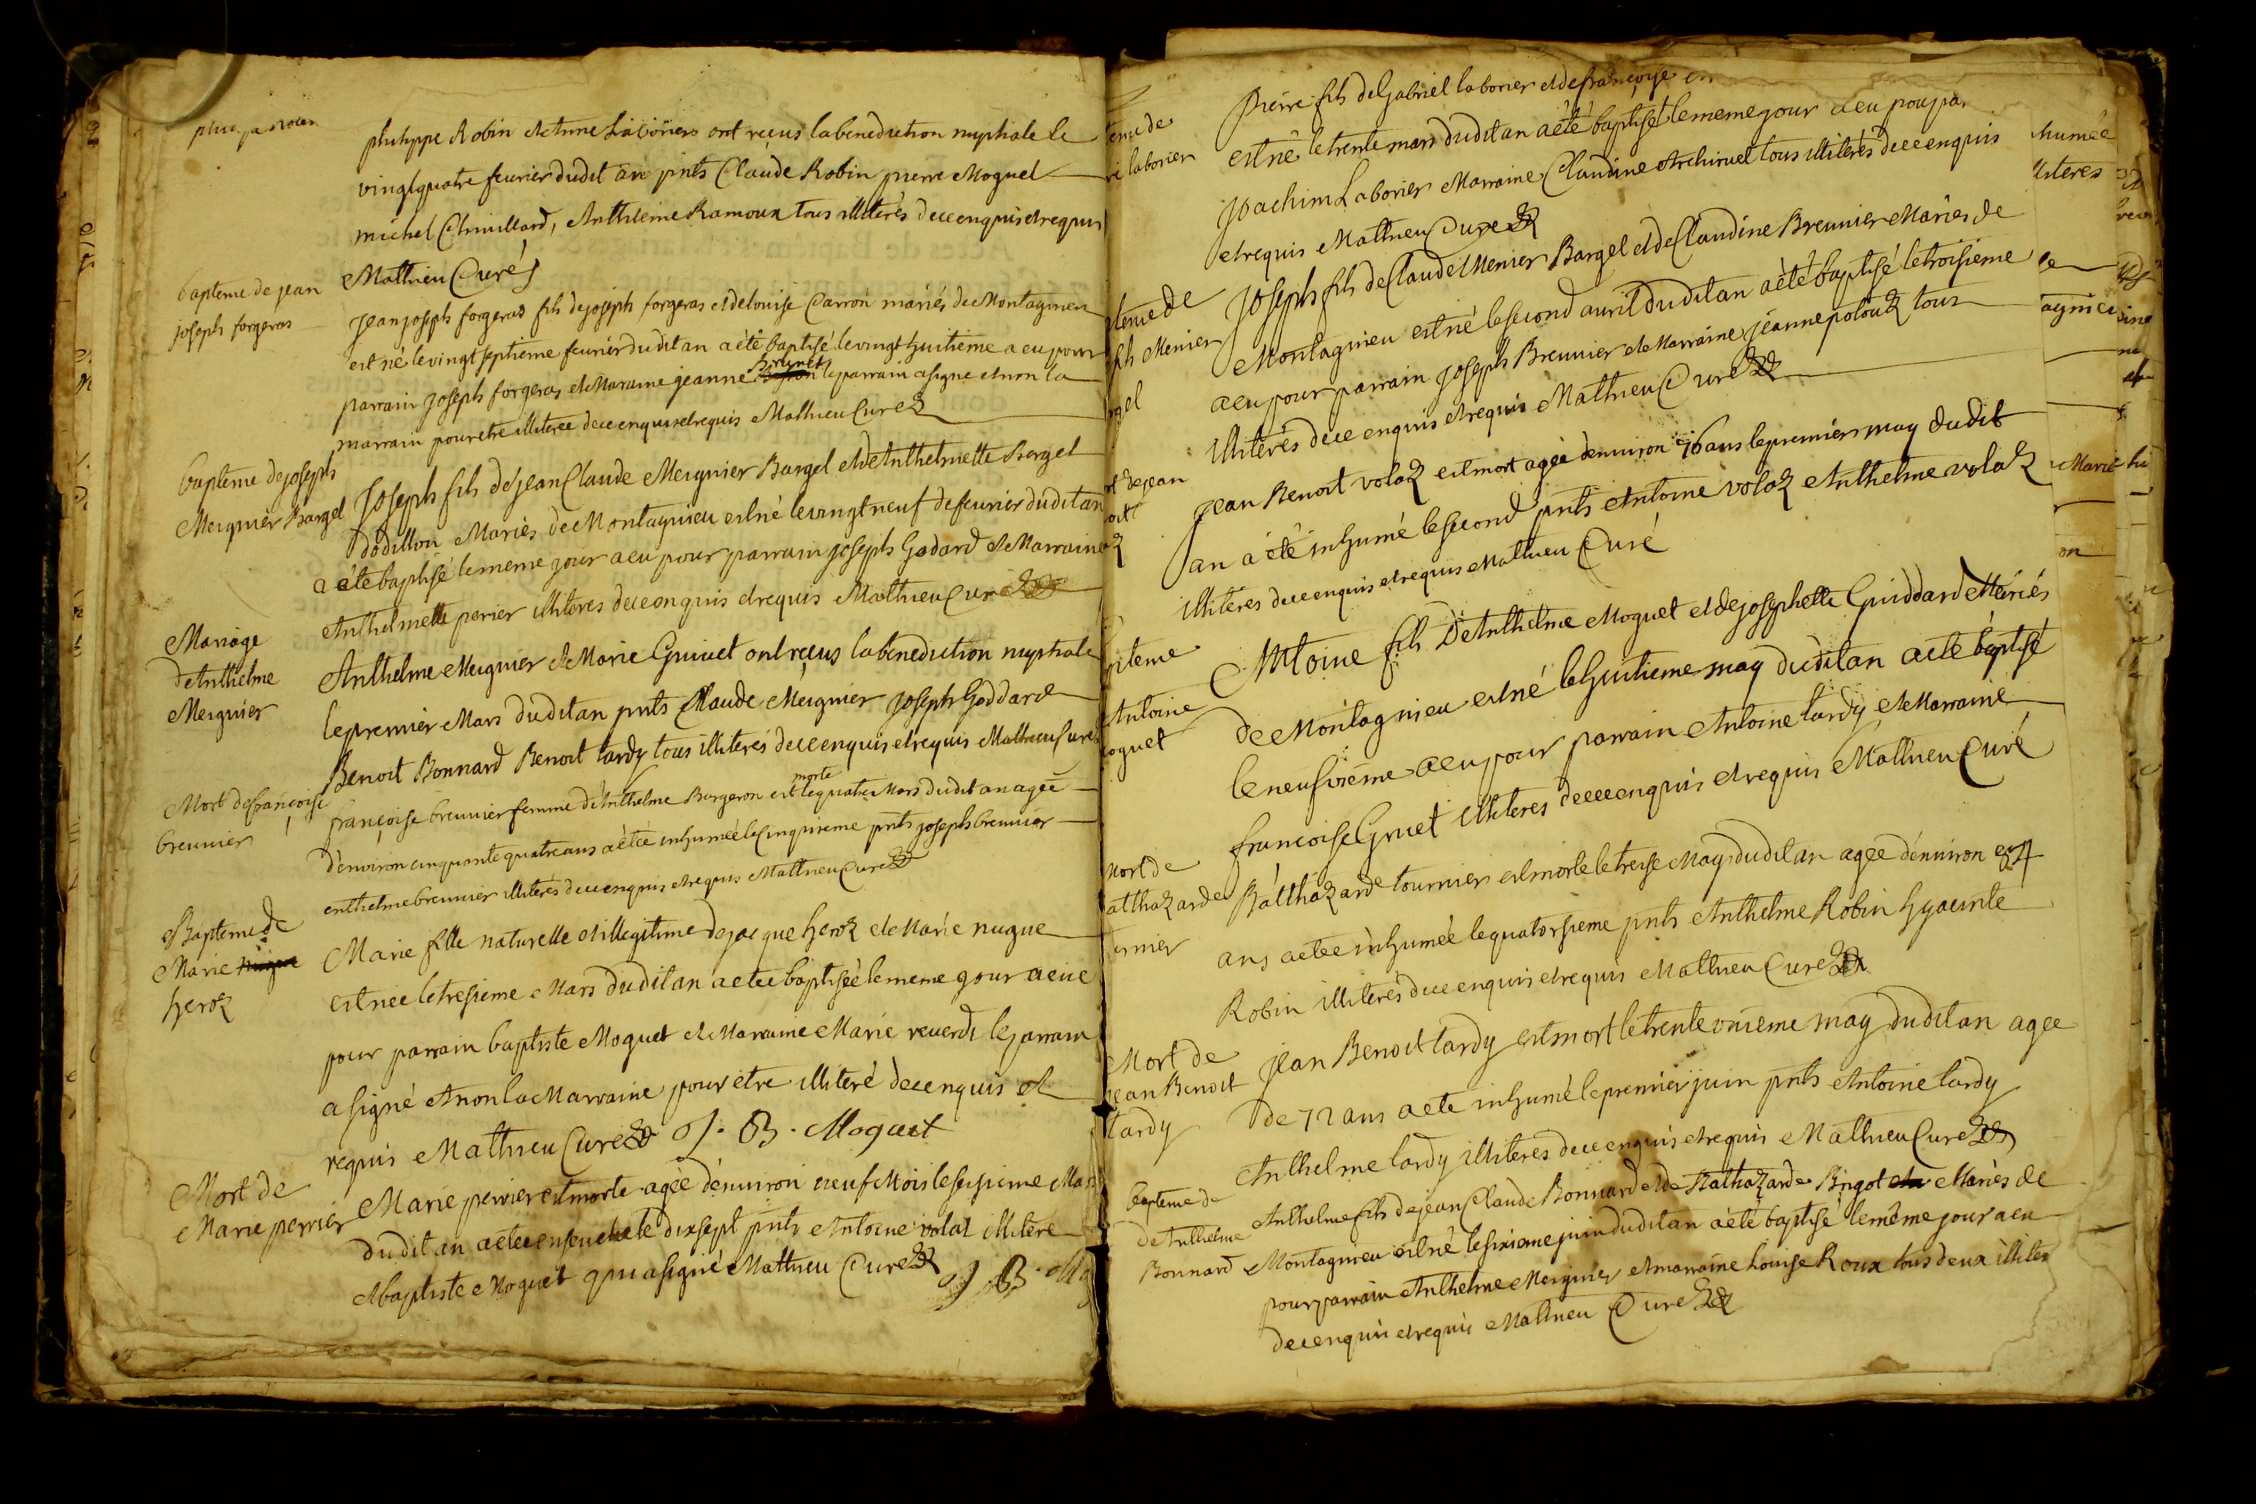 philippe Robin et Anne Laboriers ont reçus la benediction nuptiale le
vingt quatre feurier dudit an pnts Claude Robin pierre Moguet
michel Chmillard, Anthleme Ramoux tous illiterés de ce enquis et requis
Mathieu Curé
bapteme de jean
joseph forgeras
jean joseph forgeras fils de joseph forgeras et de louise Carron mariés de Montagnieu
est né le vingt septieme feurier dudit an a été baptisé le vingt huitieme a eu pour
parrain joseph forgeras et Maraine jeanne Brunet le parrain a signe et non la
marrain pour etre illiterée de ce enquise et requis Mathieu Curé
bapteme de joseph
Meignier Bargel
joseph fils de jean Claude Meignier Bargel et d'Anthelmette Bargel
dodillon Mariés de Montagnieu est né le vingt neuf de feurier dudit an
a éte baptisé le meme jour a eu pour parrain joseph Godard et Marraine
Anthelmette perier illiteres de ce enquis et requis Mathieu Curé
Mariage
d'Anthelme
Meignier
Anthelme Meignier et Marie Guinet ont reçus la benediction nuptiale
le premier Mars dudit an pnts Claude Meignier joseph Goddard
Benoit Bonnard Benoit tardy tous illiterés de ce enquis et requis Mathieu Curé
Mort de françoise
breunier
françoise breunier femme d'Anthelme Bergeron est morte le quatre Mars dudit an agée
d'environ cinquante quatre ans a étée inhumée le cinquieme pnts joseph breunier
enthelme breunier illiterés de ce enquis et requis Mathieu Curé
Bapteme de
Marie nugue
heroz
Marie fille naturelle et illegitime de jacque heroz et Marie nugue
est née le tresieme Mars dudit an a etee baptiseé le meme jour a eüe
pour parrain baptiste Moguet et Marraine Marie reuerdi le parrain
a signé et non la Marraine pour etre illiteré de ce enquis et
requis Mathieu Curé J. B. Moguet
Mort de
Marie perrier
Marie perrier est morte agée d'enuiron neuf Mois le sesieme Mars
dudit an a etee enseuelie le dix sept pnts Antoine volat illitere
et baptiste Moguet qui a signé Mathieu Curé J. B. Mog
Pierre fils de Gabriel laborier et de françoise
ré laborier
est né le trente mars dudit an a été baptisé le meme jour a eu pour par
joachim Laborier Marraine Claudine Archiruel tous illiterés de ce enquis
et requis Mathieu Curé
pteme de
ph Menier
rgel
joseph fils de Claude Menier Bargel et de Claudine Breunier Mariés de
Montagnieu est né le second auril dudit an a été baptisé le troisieme
a eu pour parrain joseph Breunier et Marraine jeanne polouz tous
illiterés de ce enquis et requis Mathieu Curé
rt de jean
oit
jean Benoit voloz est mort agée denuiron 76 ans le premier may dudit
an a été inhumé le second pnts Antoine voloz Anthelme volaz
illiteres de ce enquis et requis Mathieu Curé
pteme
Antoine
oguet
Antoine fils D'Anthelme Moguet et de josephette Guiddard Mariés
de Montagnieu est né le huitieme may dudit an a eté baptisé
le neufvieme a eu pour parrain Antoine tardy et Marraine
francoise Gruet illiteres de ce enquis et requis Mathieu Curé
Mort de
althazarde
urnier
Balthazarde tournier est morte le treise May dudit an agée d'enuiron
ans a etee inhumeé le quatorsieme pnts Anthelme Robin hyacinte
Robin illiterés de ce enquis et requis Mathieu Curé
Mort de
jean Benoit
tardy
jean Benoit tardy est mort le trente unieme may dudit an agee
de 72 ans a ete inhumé le premier juin pnts Antoine tardy
Anthelme tardy illiteres de ce enquis et requis Mathieu Curé
bapteme de
d'Anthelme
Bonnard
Anthelme fils de jean Claude Bonnard et de Balthazarde Bigot Mariés de
Montagnieu est né le sixieme juin dudit an a été baptisé le même jour a eu
pour parrain Anthelme Meignier et marraine Louise Roux tous deux illiter
de ce enquis et requis Mathieu Curé
humée
literes
agnieu
Marie
on